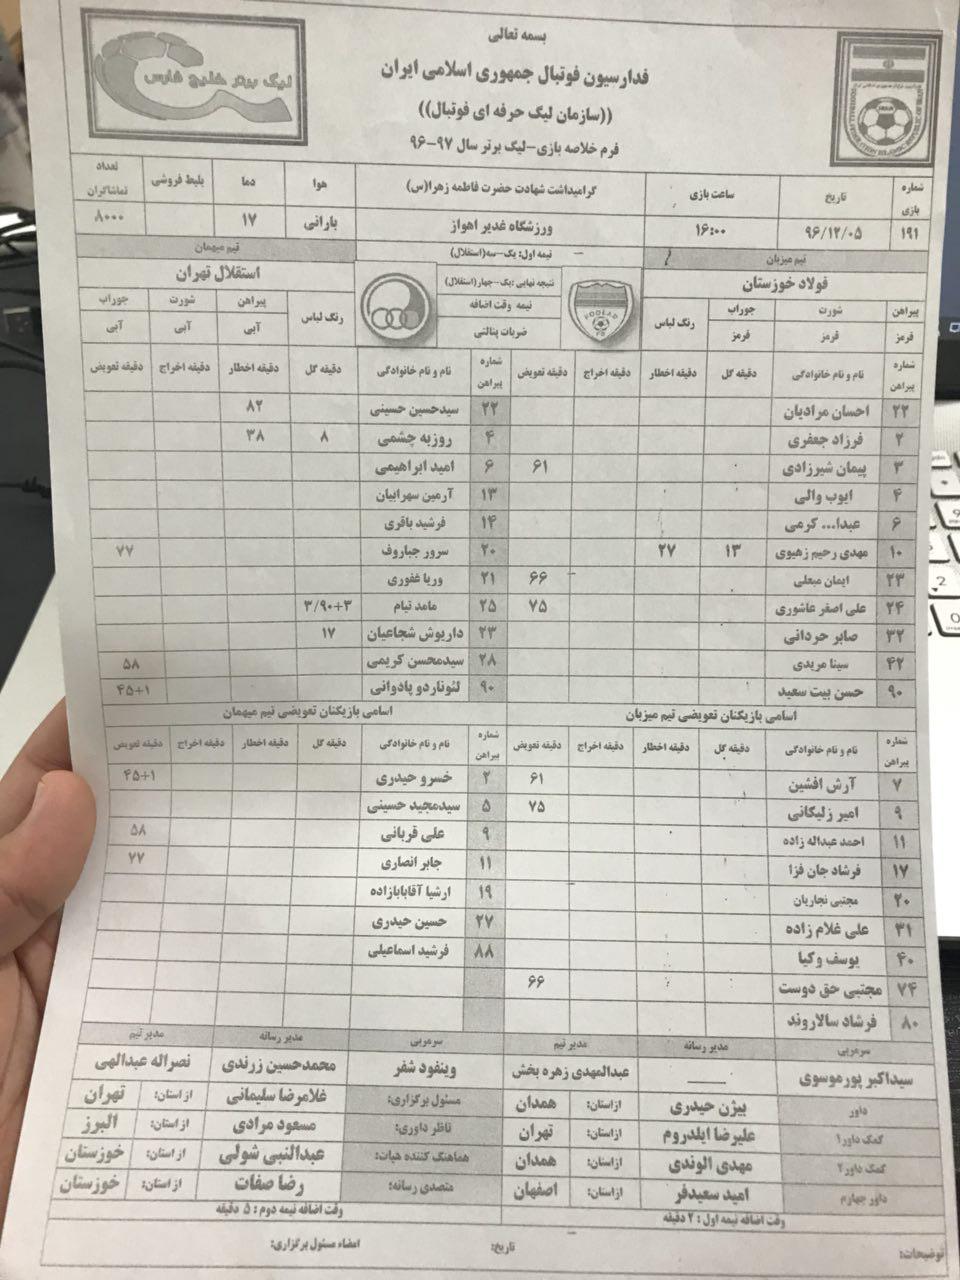 بسمه تعالی
فدارسیون فوتبال جمهوری اسلامی ایران
((سازمان لیگ حرفه ای فوتبال))
فرم خلاصه بازی-لیگ برتر سال ۹۷-۹۶
لیگ برتر خلیج فارس
شماره بازی تاریخ ساعت بازی گرامیداشت شهادت حضرت فاطمه زهرا(س) هوا دما بلیط فروشی تعداد تماشاگران
۱۹۱ ۹۶/۱۲/۰۵ ۱۶:۰۰ ورزشگاه غدیر اهواز بارانی ۱۷ ۸۰۰۰
تیم میزبان نیمه اول: یک-سه(استقلال) تیم میهمان
فولاد خوزستان نتیجه نهایی :یک-چهار(استقلال) استقلال تهران
FOOLAD
پیراهن شورت جوراب رنگ لباس نیمه وقت اضافه رنگ لباس پیراهن شورت جوراب
قرمز قرمز قرمز ضربات پنالتی آبی آبی آبی
شماره پیراهن نام و نام خانوادگی دقیقه گل دقیقه اخطار دقیقه اخراج دقیقه تعویض شماره پیراهن نام و نام خانوادگی دقیقه گل دقیقه اخطار دقیقه اخراج دقیقه تعویض
۲۲ احسان مرادیان ۲۲ سیدحسین حسینی ۸۲
۲ فرزاد جعفری ۴ روزبه چشمی ۸ ۳۸
۳ پیمان شیرزادی ۶۱ ۶ امید ابراهیمی
۴ ایوب والی ۱۳ آرمین سهرابیان
۶ عبدا... کرمی ۱۴ فرشید باقری
۱۰ مهدی رحیم زهیوی ۱۳ ۲۷ ۲۰ سرور جباروف ۷۷
۲۳ ایمان مبعلی ۶۶ ۲۱ وریا غفوری
۲۴ علی اصغر عاشوری ۷۵ ۲۵ مامد تیام ۳/۹۰+۳
۳۲ صابر حردانی ۲۳ داریوش شجاعیان ۱۷
۴۲ سینا مریدی ۲۸ سیدمحسن کریمی ۵۸
۹۰ حسن بیت سعید ۹۰ لئوناردو پادوانی ۴۵+۱
اسامی بازیکنان تعویضی تیم میزبان اسامی بازیکنان تعویضی تیم میهمان
شماره پیراهن نام و نام خانوادگی دقیقه گل دقیقه اخطار دقیقه اخراج دقیقه تعویض شماره پیراهن نام و نام خانوادگی دقیقه گل دقیقه اخطار دقیقه اخراج دقیقه تعویض
۷ آرش افشین ۶۱ ۲ خسرو حیدری ۴۵+۱
۹ امیر زلیکانی ۷۵ ۵ سیدمجید حسینی
۱۱ احمد عبداله زاده ۹ علی قربانی ۵۸
۱۷ فرشاد جان فزا ۱۱ جابر انصاری ۷۷
۲۰ مجتبی نجاریان ۱۹ ارشیا آقابابازاده
۳۱ علی غلام زاده ۲۷ حسین حیدری
۴۰ یوسف وکیا ۸۸ فرشید اسماعیلی
۷۴ مجتبی حق دوست ۶۶
۸۰ فرشاد سالاروند
سرمربی مدیر رسانه مدیر تیم سرمربی مدیر رسانه مدیر تیم
سیداکبر پورموسوی عبدالمهدی زهره بخش وینفود شفر محمدحسین زرندی نصراله عبدالهی
داور بیژن حیدری ازاستان: همدان مسئول برگزاری: غلامرضا سلیمانی ازاستان: تهران
کمک داور۱ علیرضا ایلدروم ازاستان: تهران ناظر داوری: مسعود مرادی ازاستان: البرز
کمک داور۲ مهدی الوندی ازاستان: همدان هماهنگ کننده هیات: عبدالنبی شولی ازاستان: خوزستان
داور چهارم امید سعیدفر ازاستان: اصفهان متصدی رسانه: رضا صفات ازاستان: خوزستان
وقت اضافه نیمه اول : ۲ دقیقه وقت اضافه نیمه دوم : ۵ دقیقه
توضیحات: تاریخ: امضاء مسئول برگزاری: